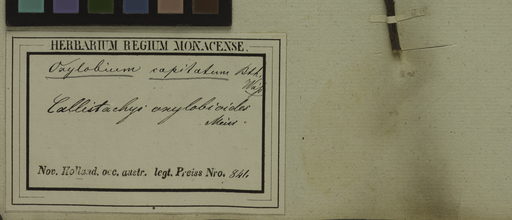 HERBARIUM REGIUM MONACENSE.
Oxylobium capitatum Bth.
Callistachys oxylobioides
Meisn.
Nov. Holland. occ. austr. legt. Preiss Nro. 841.